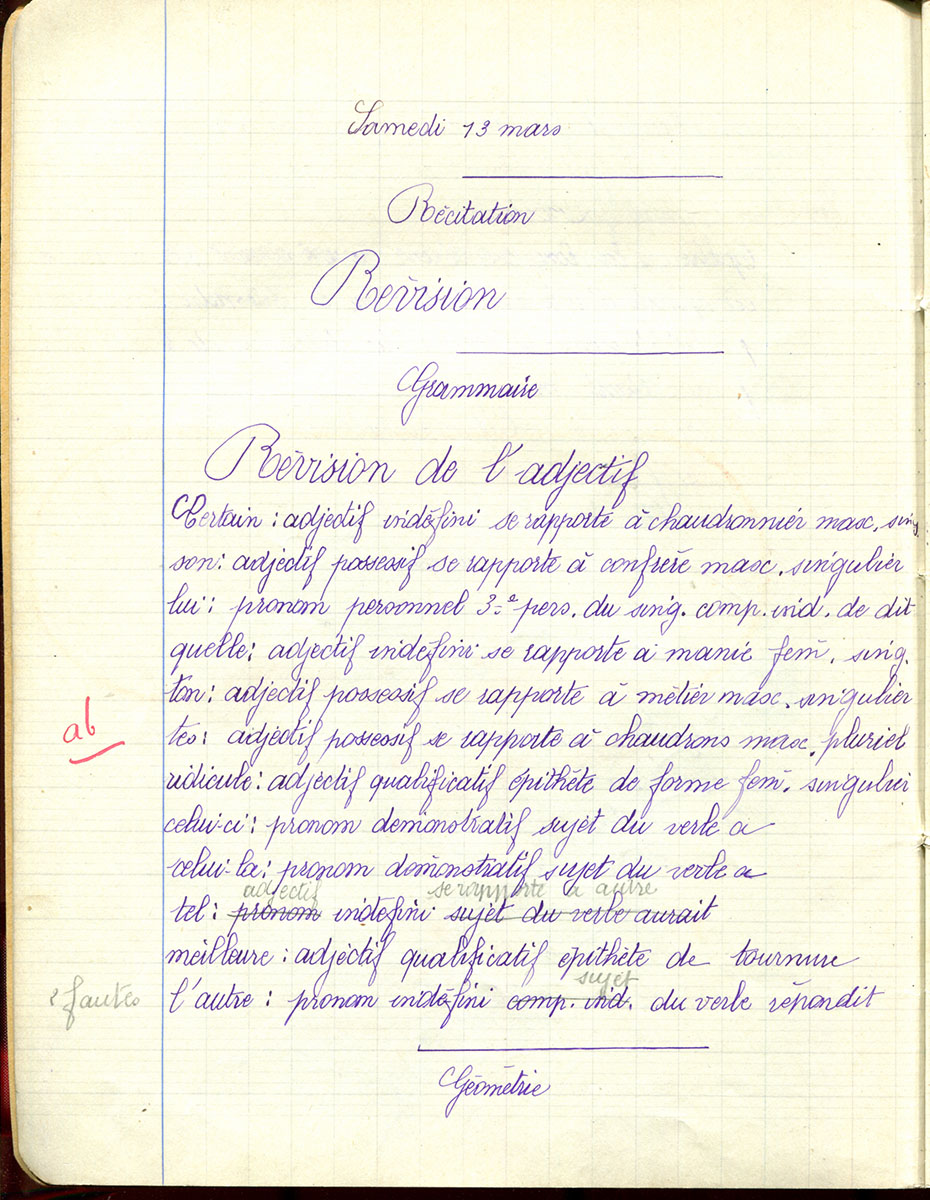 Samedi 13 mars
Récitation
Révision
Grammaire
Révision de l'adjectif
Certain : adjectif indéfini se rapporte à chaudronnier masc. sing.
son : adjectif possessif se rapporte à confrère masc. singulier
lui : pronom personnel 3e pers. du sing. comp. ind. de dit
quelle : adjectif indéfini se rapporte à manie fém. sing.
ton : adjectif possessif se rapporte à métier masc. singulier
ab
tes : adjectif possessif se rapporte à chaudrons masc. pluriel
ridicule : adjectif qualificatif épithète de forme fém. singulier
celui-ci : pronom démonstratif sujet du verbe a
celui-là : pronom démonstratif sujet du verbe a
adjectif se rapporte à autre
tel : pronom indéfini sujet du verbe aurait
meilleure : adjectif qualificatif épithète de tournure
sujet
2 fautes
l'autre : pronom indéfini comp. ind. du verbe répondit
Géométrie